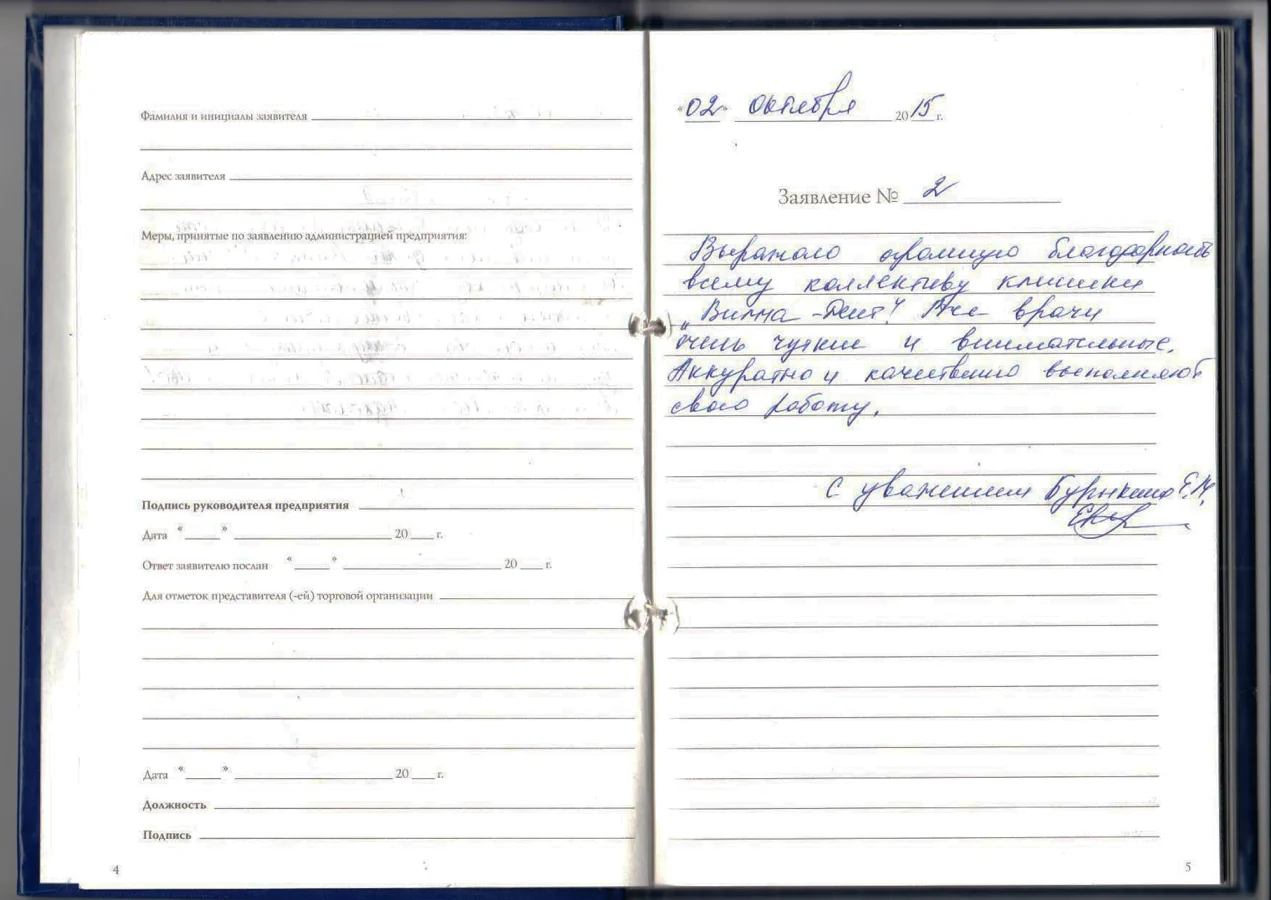 Фамилия и инициалы заявителя
Адрес заявителя
Меры, принятые по заявлению администрацией предприятия:
Подпись руководителя предприятия
Дата " " 20 г.
Ответ заявителю послан " " 20 г.
Для отметок представителя (-ей) торговой организации
Дата " " 20 г.
Должность
Подпись
4
"02" октября 2015 г.
Заявление № 2
Выражаю огромную благодарность
всему коллективу клиники
"Вилна-Дент". Все врачи
очень чуткие и внимательные.
Аккуратно и качественно выполняют
свою работу.
С уважением Е.М.
5